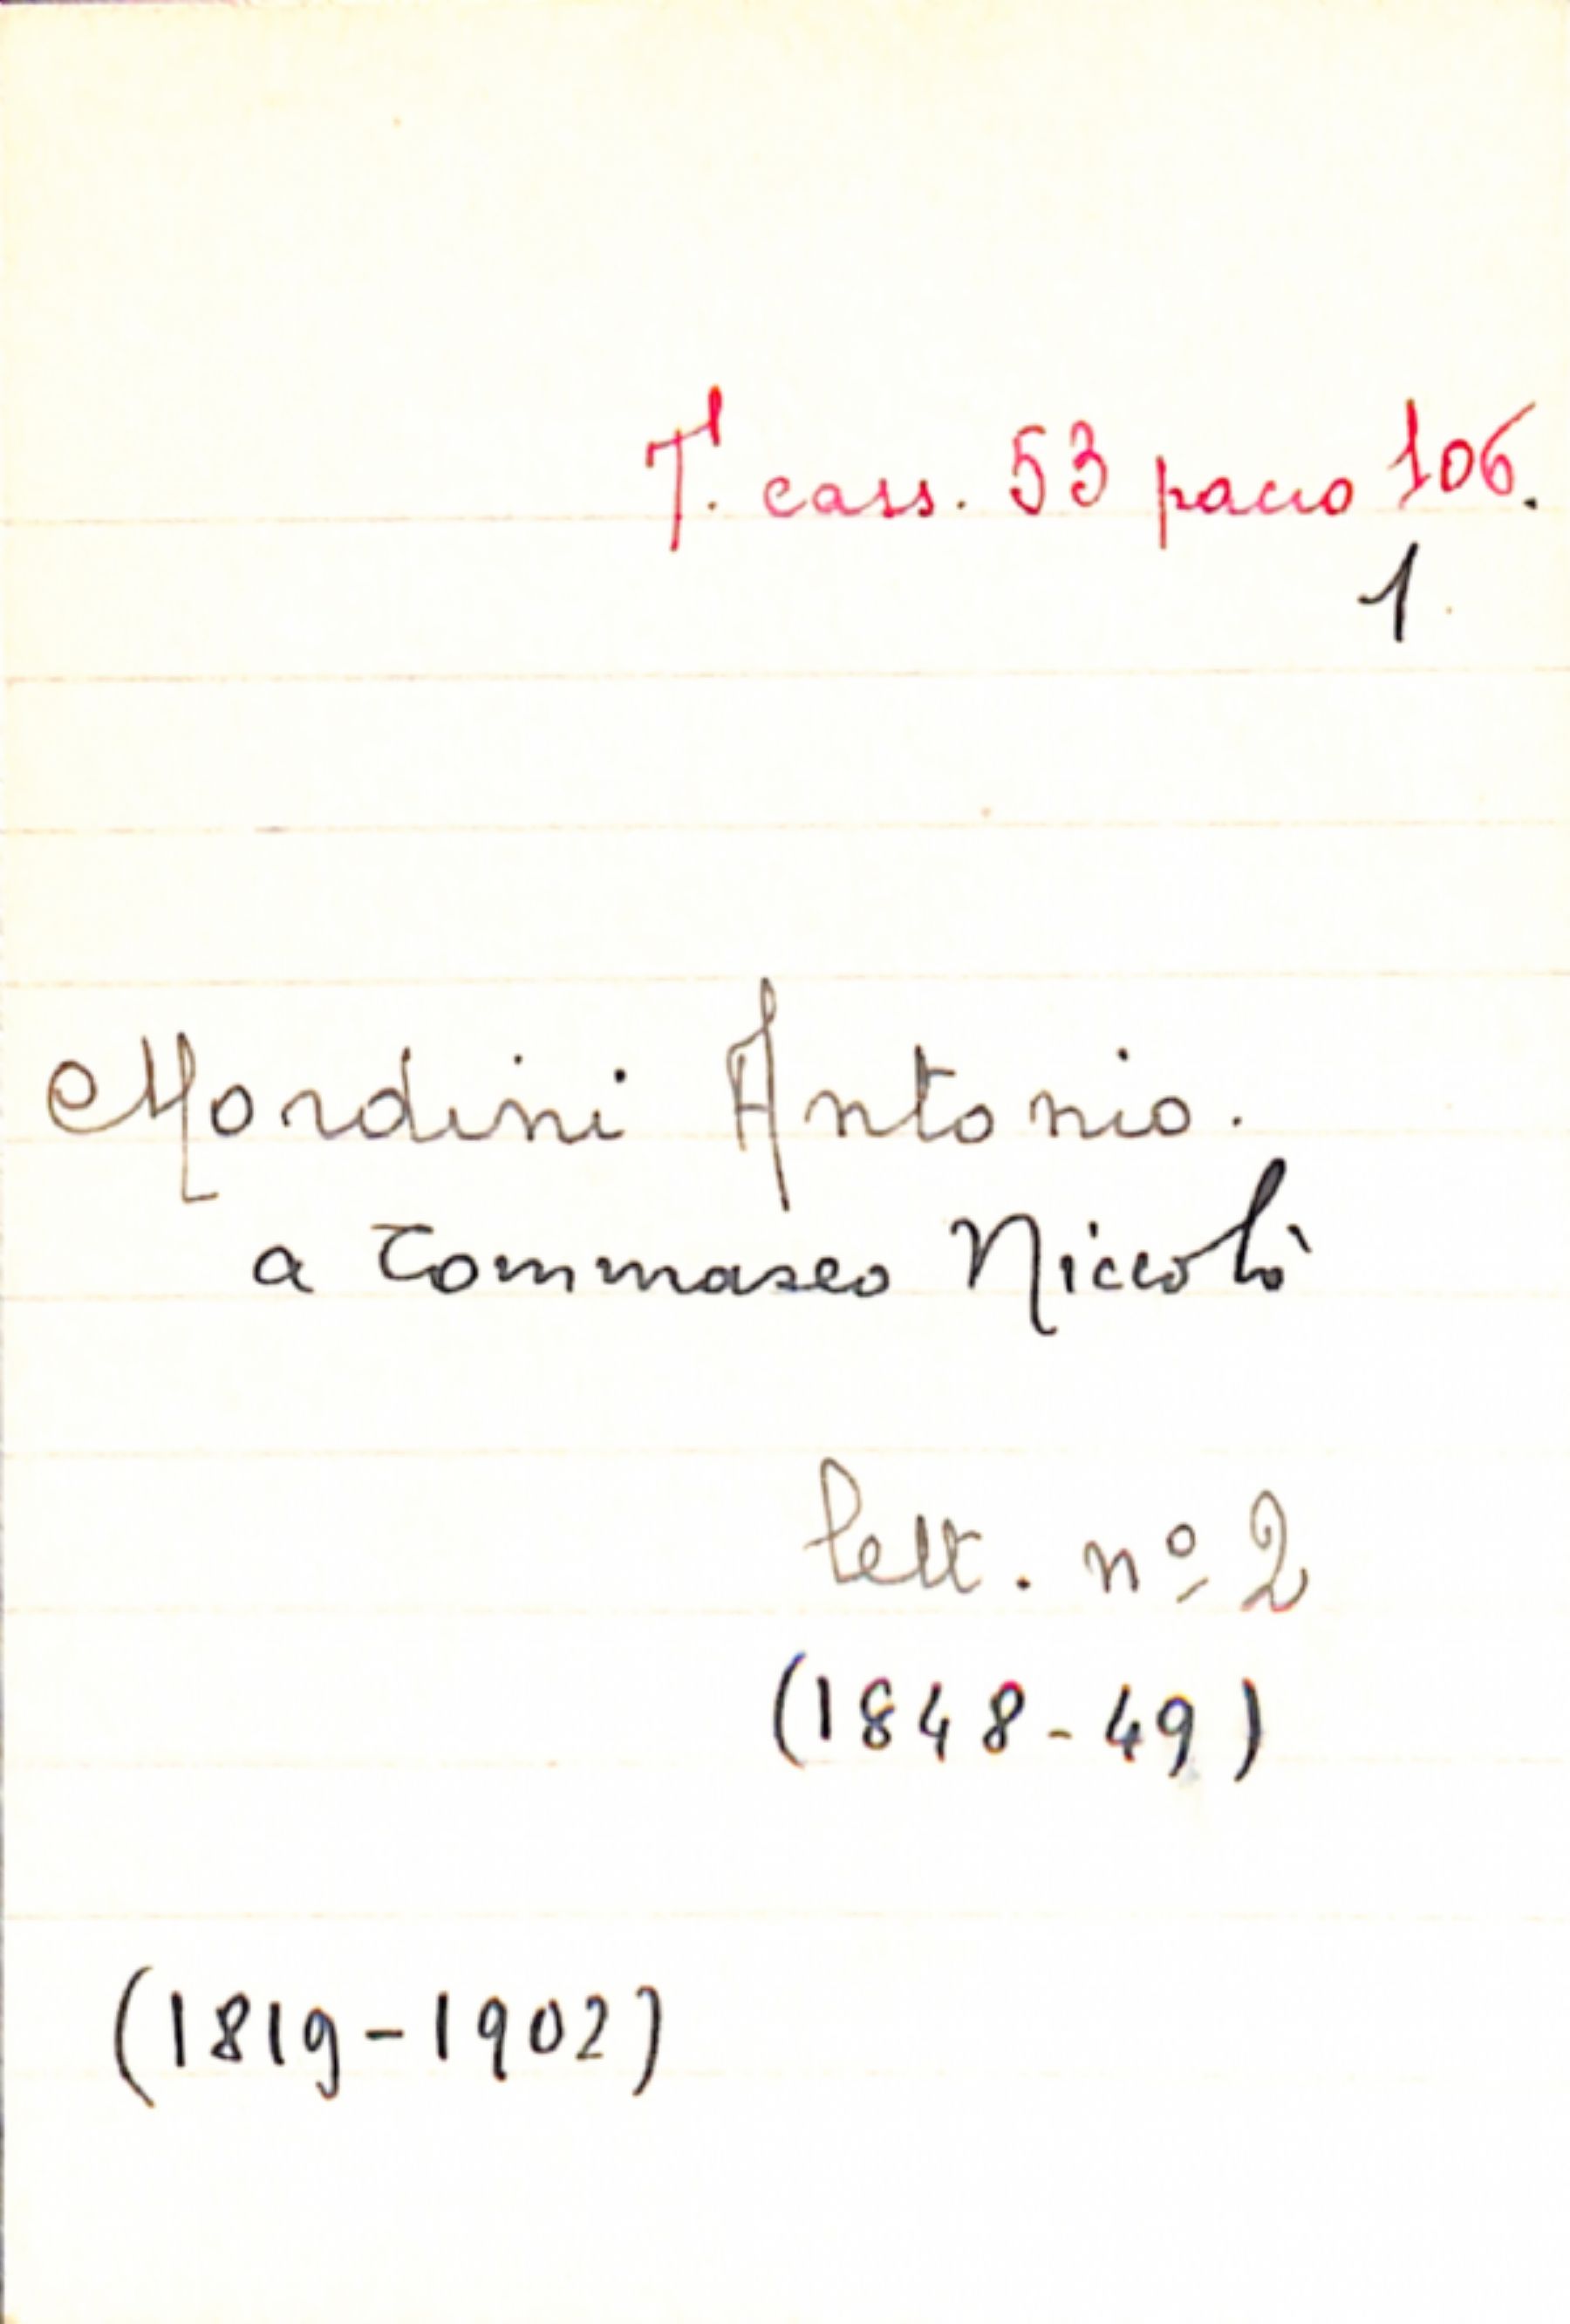 T. cass. 53 pacco 106.
1.
Mordini Antonio.
a Tommaseo Niccolò
lett. nº 2
(1848-49)
(1819-1902)